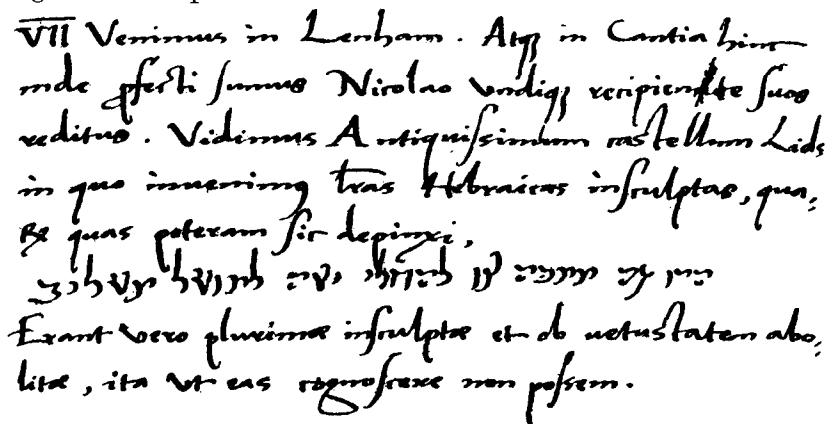 VII Venimus in Lenham. Atq̢ in Cantia hinc
inde ꝓfecti sumus Nicolao undiq̢ recipiente suos
reditus. Vidimus Antiquissimum castellum Lids
in quo invenimꝰ lr̃as Hebraicas insculptas, qua,,
ꝝ quas poteram sic depinxi,
Erant vero plurimæ insculptæ et ob uetustatem abo,,
litæ, ita ut eas cognoscere non possem.